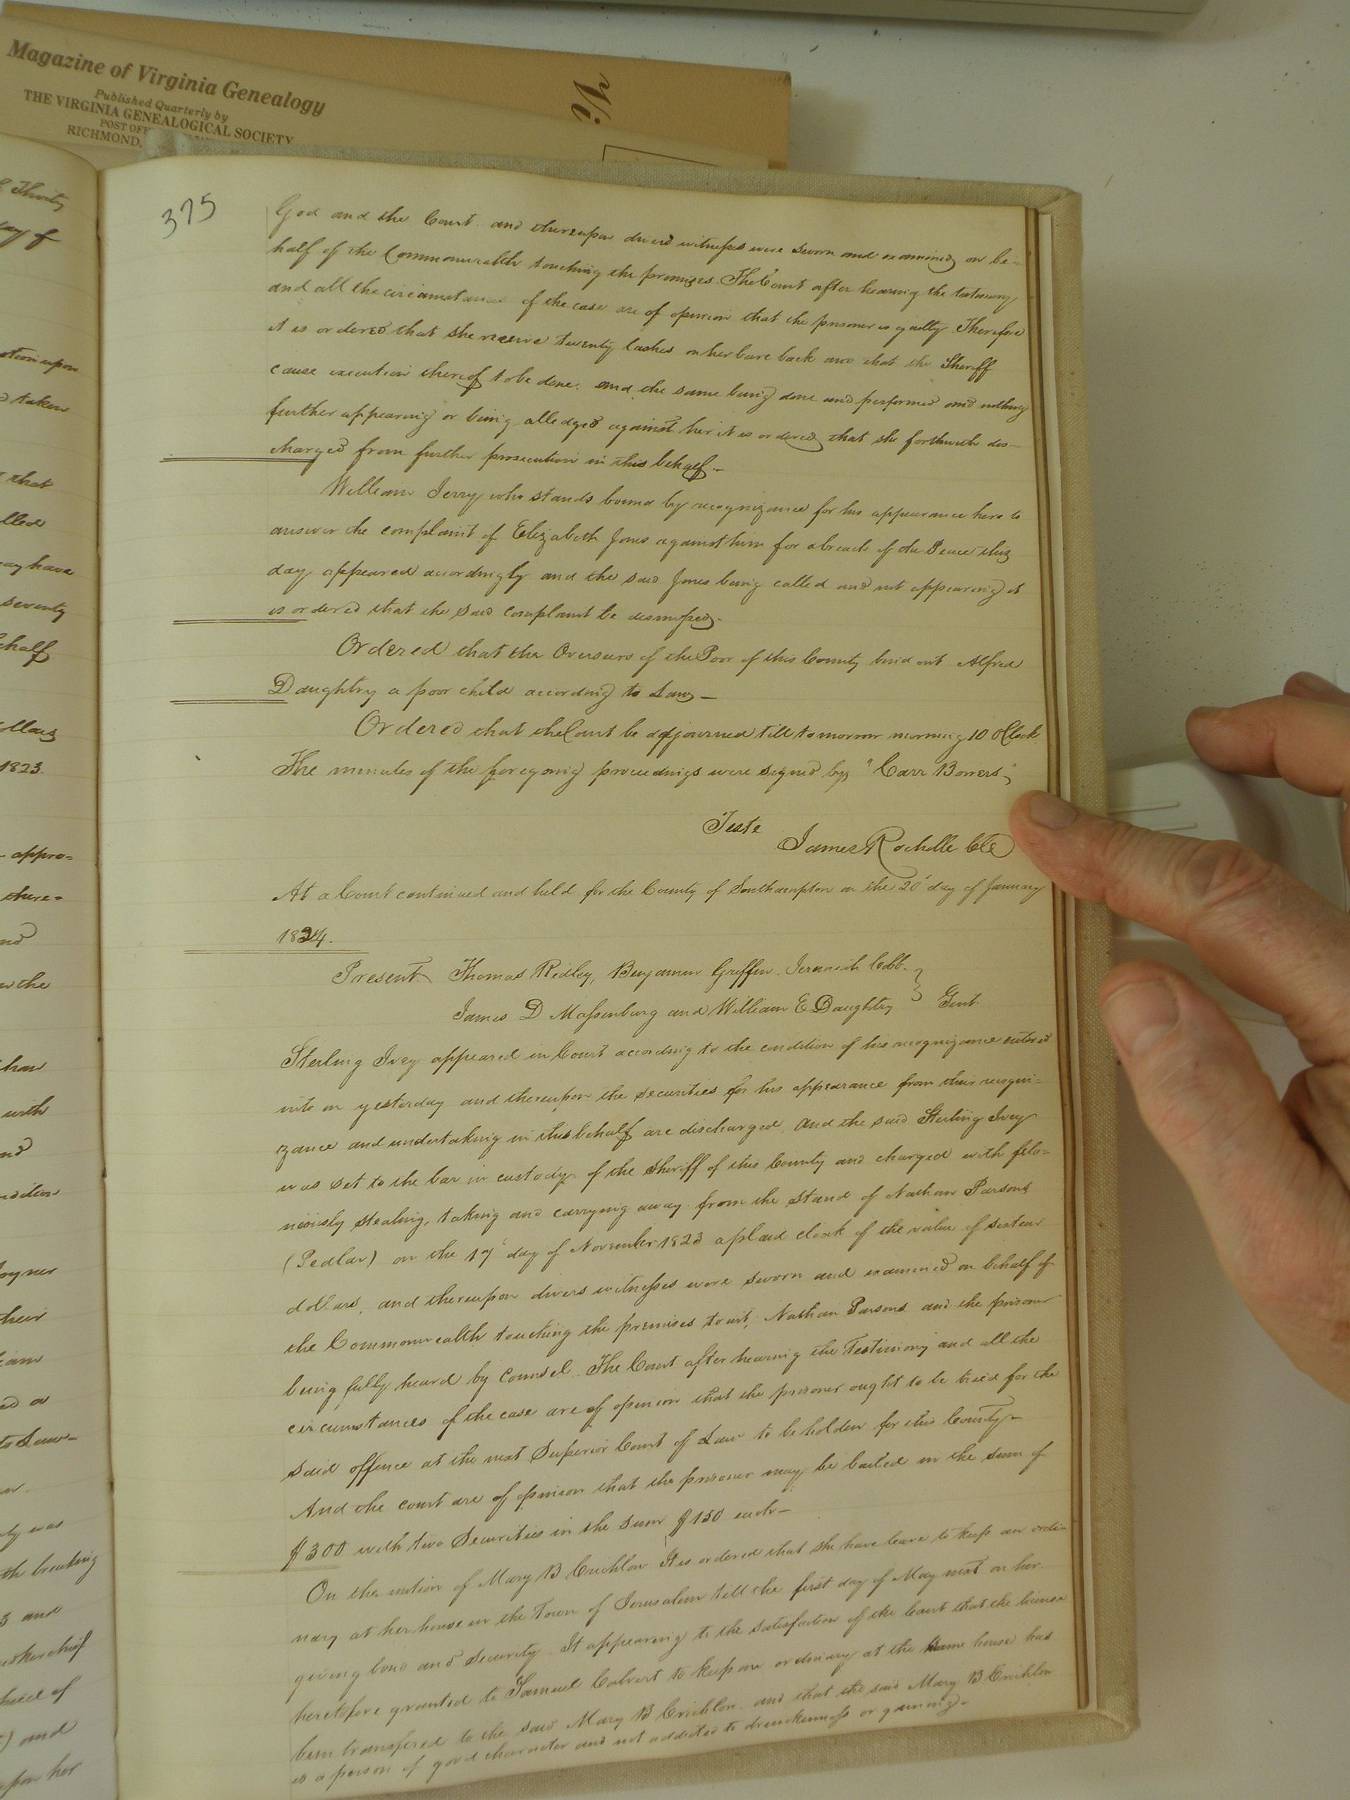 Magazine of Virginia Genealogy
Published Quarterly by
THE VIRGINIA GENEALOGICAL SOCIETY
POST OFF
RICHMOND,
Vi
Thirty
day of
tion upon
taken
that
lled
ay have
seventy
half
ollars
1823.
appro=
there=
nd
the
than
with
nd
ndition
oyner
their
iam
ed as
to Law-
ly was
th breaking
3 and
kerchief
of
) and
upon her
375
God and the Court. and thereupon divers witnesses were sworn and examined on be=
half of the Commonwealth touching the premises. The Court after hearing the testimony
and all the circumstances of the case are of opinion that the prisoner is guilty. Therefore
it is ordered that she receive twenty lashes on her bare back and that the Sheriff
cause execution thereof to be done. and the same being done and performed and nothing
further appearing or being alledged against her it is ordered that she forthwith dis-
charged from further prosecution in this behalf.-
William Jerry who stands bound by recognizance for his appearance here to
answer the complaint of Elizabeth Jones against him for a breach of the Peace this
day appeared accordingly and the said Jones being called and not appearing it
is ordered that the said complaint be dismissed.
Ordered that the Overseers of the Poor of this County bind out Alfred
Daughtry a poor child according to Law-
Ordered that the Court be adjourned till tomorrow morning 10 OClock.
The minutes of the foregoing proceedings were signed by, "Carr Bowers,"
Teste
James Rochelle Clk
At a Court continued and held for the County of Southampton on the 20th day of January
1824.
Present Thomas Ridley, Benjamin Griffin, Jeremiah Cobb.
James D Massenburg and William E Daughtry } Gent.
Sterling Ivey appeared in Court according to the condition of his recognizance entered
into on yesterday and thereupon the securities for his appearance from their recogni-
zance and undertaking in this behalf are discharged, and the said Sterling Ivey
was set to the bar in custody of the Sheriff of this County and charged with felo-
niously stealing, taking and carrying away from the stand of Nathan Parsons
(Pedlar) on the 17th day of November 1823 a plaid cloak of the value of sixteen
dollars, and thereupon divers witnesses were sworn and examined on behalf of
the Commonwealth touching the premises to wit, Nathan Parsons and the prisoner
being fully heard by Counsel. The Court after hearing the Testimony and all the
circumstances of the case are of opinion that the prisoner ought to be tried for the
said offence at the next Superior Court of Law to be holden for this County-
And the court are of opinion that the prisoner may be bailed in the sum of
$300 with two Securities in the sum $150 each-
On the motion of Mary B Crichlow It is ordered that she have leave to keep an ordi-
nary at her house in the Town of Jerusalem till the first day of May next on her
giving bond and security. It appearing to the satisfaction of the Court that the license
heretofore granted to Samuel Calvert to keep an ordinary at the same house has
been transfered to the said Mary B Crichlow. and that the said Mary B Crichlow
is a person of good character and not addicted to drunkenness or gaming.-